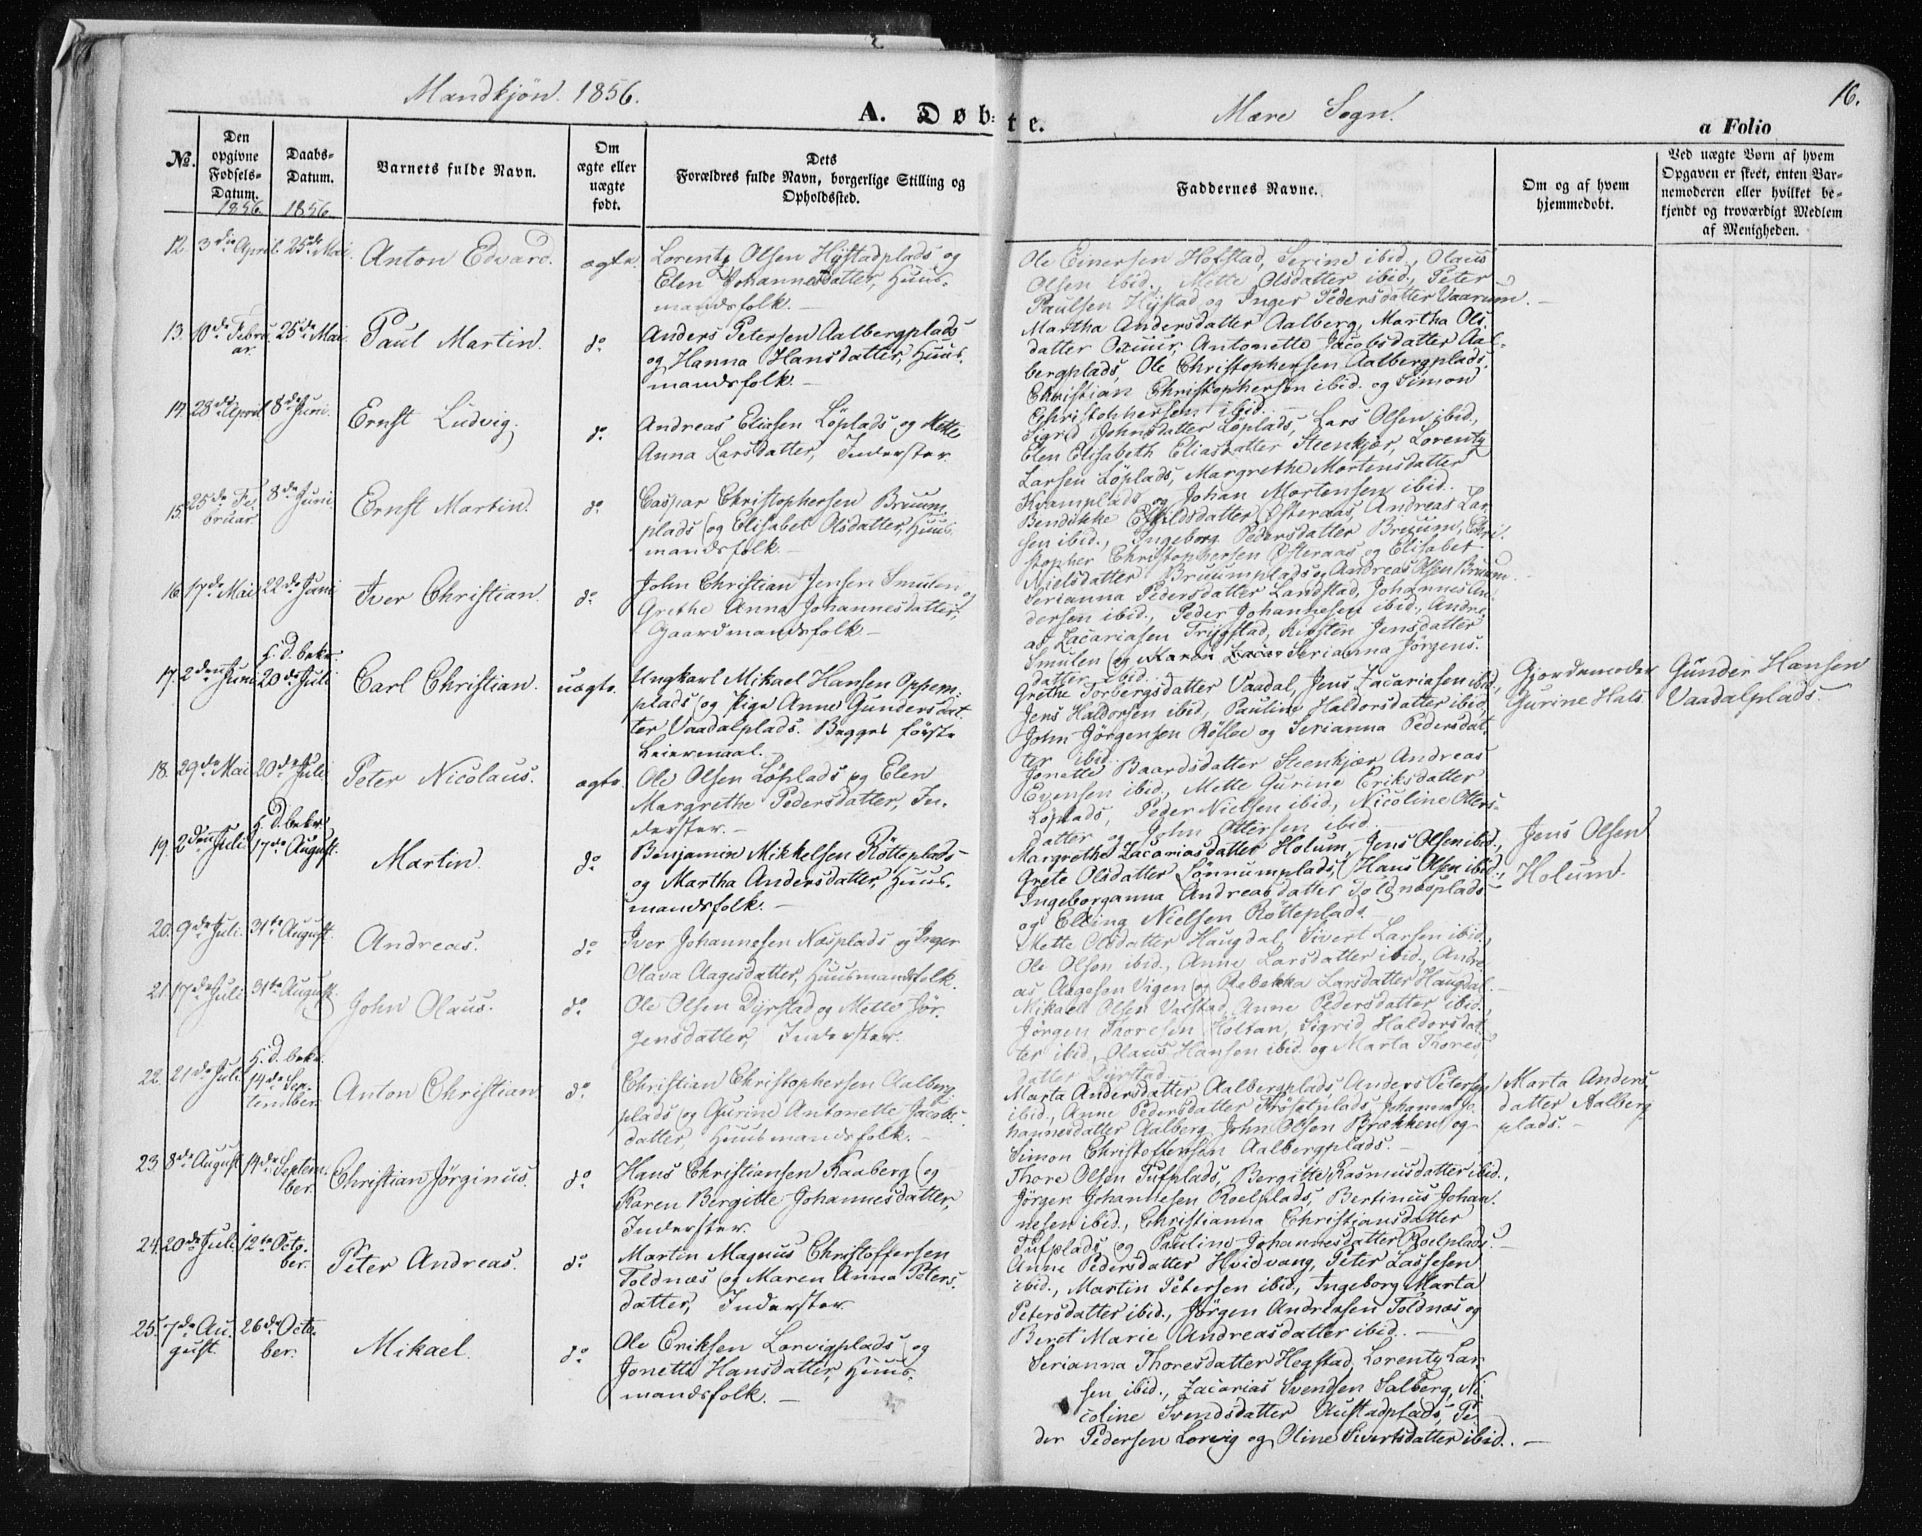 Mandkjøn. 1856.
A. Døbte.
Mære Sogn.
16.
a Folio
No.
Den opgivne Fødsels-Datum.
1856.
Daabs-Datum.
1856.
Barnets fulde Navn.
Om ægte eller uægte født.
Dets
Forældres fulde Navn, borgerlige Stilling og
Opholdssted.
Faddernes Navne.
Om og af hvem
hjemmedøbt.
Ved uægte Børn af hvem
Opgaven er skeet, enten Bar-
nemoderen eller hvilket be-
kjendt og troværdigt Medlem
af Menigheden.
12. 3die April. 25de Mai. Anton Edvard. ægte.
Lorents Olsen Hystadplads og
Elen Johannesdatter, Huus-
mandsfolk. —
Ole Einersen Hofstad, Serine ibid., Olaus
Olsen ibid., Mette Olsdatter ibid., Peter
Paulsen Hystad og Inger Pedersdatter Vaarum. —
13. 10de Febru
ar. 25de Mai. Paul Martin. do
Anders Petersen Aalbergplads
og Hanna Hansdatter, Huus-
mandsfolk. —
Martha Andersdatter Aalberg, Martha Ols-
datter, Antonette Jacobsdatter Aal-
bergplads, Ole Christophersen Aalbergplads,
Christian Christophersen ibid. og Simon
Christophersen ibid. —
14. 28de April 8de Juni. Ernst Ludvig. do
Andreas Eliasen Löplads og Mette
Anna Larsdatter, Inderster.
Sigrid Johnsdatter Löplads, Lars Olsen ibid.,
Elen Elisabeth Eliasdatter Steenkjær, Lorents
Larsen Löplads, Margrethe Mortensdatter
Kvamplads og Johan Mortensen ibid.
15. 25de Fe-
bruar. 8de Juni Ernst Martin. do
Casper Christophersen Bruum-
plads og Elisabet Olsdatter, Huus-
mandsfolk. —
Bendikke Eskildsdatter Österaas, Andreas Lar-
sen ibid., Ingeborg Pedersdatter Bruum, Chri-
stopher Christophersen Österaas og Elisabet
Nielsdatter Bruumplads og Andreas Olsen Bruum.
16. 17de Mai 22de Juni Iver Christian. do
John Christian Jensen Smulen og
Grethe Anna Johannesdatter,
Gaardmandsfolk —
Serianna Pedersdatter Landstad, Johannes An-
dersen ibid., Peder Johannesen ibid., Andre-
as Zacariasen Trygstad, Kirsten Jensdatter
Smulen og Serianna Jörgens-
datter ibid.
17. 2den Juni H. D. bekr.
20de Juli Carl Christian. uægte.
Ungkarl Mikael Hansen Oppem-
plads og Pige Anne Gundersdat-
ter Vaadalplads. Begges første
Leiermaal.
Grethe Torbergsdatter Vaadal, Jens Zacariasen ibid,
Jens Haldorsen ibid, Pauline Haldorsdatter ibid,
John Jörgensen Röske og Serianna Pedersdat-
ter ibid.
Gjordemoder
Gurine Hals.
Günder Hansen
Vaadalplads —
18. 29de Mai 20de Juli Peter Nicolaus. ægte.
Ole Olsen Löplads og Elen
Margrethe Pedersdatter, In-
derster. —
Jonette Baardsdatter Steenkjær, Andreas
Evensen ibid, Mette Gurine Eriksdatter
Löplads, Peder Nielsen ibid, Nicoline Otters-
datter og John Ottersen ibid.
19. 2den Juli. H. D. bekr.
17de August. Martin. do
Benjamin Mikkelsen Rötteplads
og Martha Andersdatter, Huus-
mandsfolk. —
Margrethe Zacariasdatter Holum, Jens Olsen ibid,
Grete Olsdatter Lönnumplads, Hans Olsen ibid,
Ingeborganna Andreasdatter Toldnæsplads
og Elling Nielsen Rötteplads.
Jens Olsen
Holum.
20. 9de Juli. 31te August. Andreas. do
Iver Johannesen Næsplads og Inger
Olava Aagesdatter, Huusmandsfolk.
Mette Olsdatter Haugdal, Sivert Larsen ibid,
Ole Olsen ibid., Anne Larsdatter ibid., Andre-
as Aagesen Vigen og Rebekka Larsdatter Haugdal. —
21. 17de Juli 31te August. John Olaus. do
Ole Olsen Dyrstad og Mette Jör-
gensdatter, Inderster.
Mikael Olsen Valstad, Anne Pedersdatter ibid.
Jörgen Thoresen Holtan, Sigrid Haldorsdat-
ter ibid, Olaus Hansen ibid. og Marta Thores-
datter Dyrstad.
22. 21de Juli. H. D. bekr.
14de Sep-
tember. Anton Christian. do
Christian Christophersen Aalberg-
plads og Gurine Antonette Jacobs-
datter, Huusmandsfolk. —
Marta Andersdatter Aalbergplads, Anders Petersen
ibid., Anne Pedersdatter Frösetplads, Johanna Jo-
hannesdatter Aalberg, John Olsen Brækken og
Simon Christoffersen Aalbergplads. —
Marta Anders-
datter Aalberg-
plads. —
23. 8de August 14de Septem-
ber. Christian Jörginus. do
Hans Christiansen Kaaberg og
Karen Bergitte Johannesdatter,
Inderster.
Thore Olsen Tufplads, Bergitte Rasmusdatter ibid.,
Jörgen Johannesen Roelplads, Bertinus Johan-
nesen ibid., Christianna Christiansdatter
Tufplads og Pauline Johannesdatter Roelplads. —
24. 20de Juli 12te Octo-
ber. Peter Andreas. do
Martin Magnus Christoffersen
Toldnæs og Maren Anna Peters-
datter, Inderster.
Anne Pedersdatter Hvidvang, Peter Lassesen
ibid., Martin Petersen ibid, Ingeborg Marta
Petersdatter ibid., Jörgen Andersen Toldnæs og
Beret Marie Andreasdatter ibid. —
25. 7de Au-
gust. 26de Octo-
ber. Mikael. do
Ole Eriksen Lorvigplads og
Jonetta Hansdatter, Huus-
mandsfolk. —
Serianna Thoresdatter Hegstad, Lorents Lar-
sen ibid., Zacarias Svendsen Salberg, Ni-
coline Svendsdatter Austadplads, Pe-
der Pedersen Lorvig og Oline Sivertsdatter ibid. —